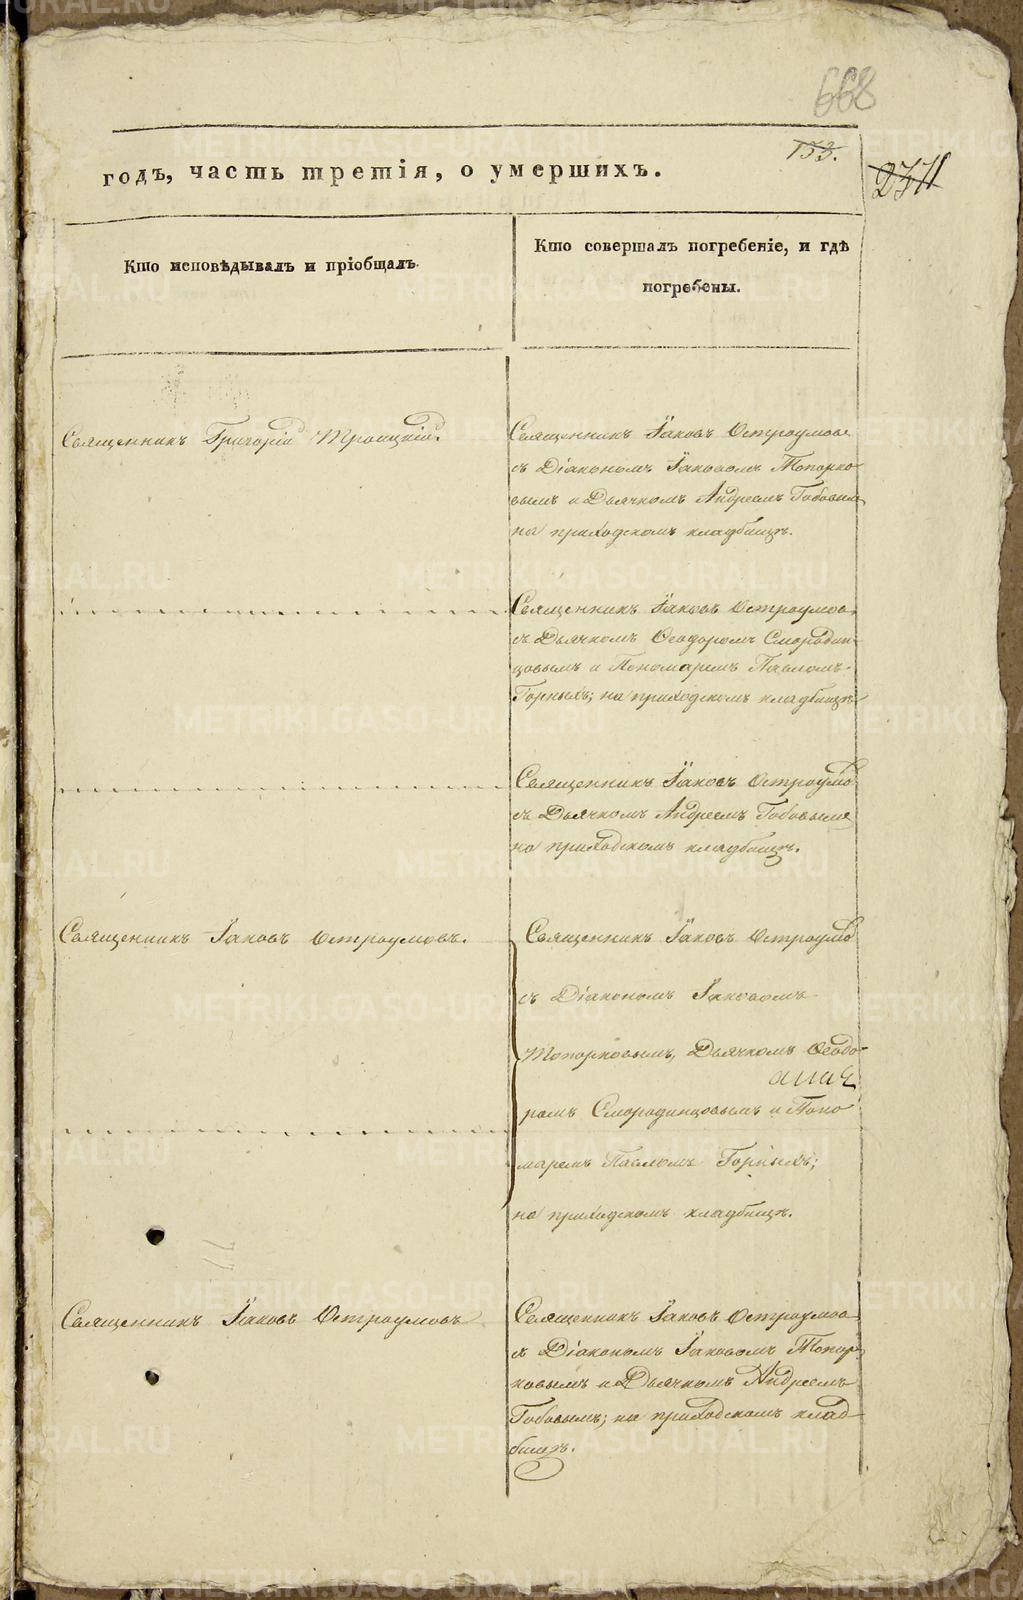 668
153.
2371
годъ, часть третія, о умершихъ.
Кто исповѣдывалъ и пріобщалъ.
Кто совершалъ погребеніе, и гдѣ
погребены.
Священникъ Григорій Троицкій.
Священникъ Іаковъ Остроумовъ
съ Діакономъ Іаковомъ Топорко-
вымъ и Дьячкомъ Андреемъ Бобовымъ
на приходскомъ кладбищѣ.
Священникъ Іаковъ Остроумовъ
съ Дьячкомъ Ѳеодоромъ Смородин-
цовымъ и Пономаремъ Павломъ
Горныхъ; на приходскомъ кладбищѣ
Священникъ Іаковъ Остроумо
съ Дьячкомъ Андреемъ Бобовымъ
на приходскомъ кладбищѣ.
Священникъ Іаковъ Остроумовъ.
Священникъ Іаковъ Остроумо
съ Діакономъ Іаковомъ
Топорковымъ, Дьячкомъ Ѳеодо-
ромъ Смородинцовымъ и Поно
маремъ Павломъ Горныхъ;
на приходскомъ кладбищѣ.
Священникъ Іаковъ Остроумовъ
Священникъ Іаковъ Остроумовъ
съ Діакономъ Іаковомъ Топор-
ковымъ и Дьячкомъ Андреемъ
Бобовымъ; на приходскомъ клад-
бищѣ.